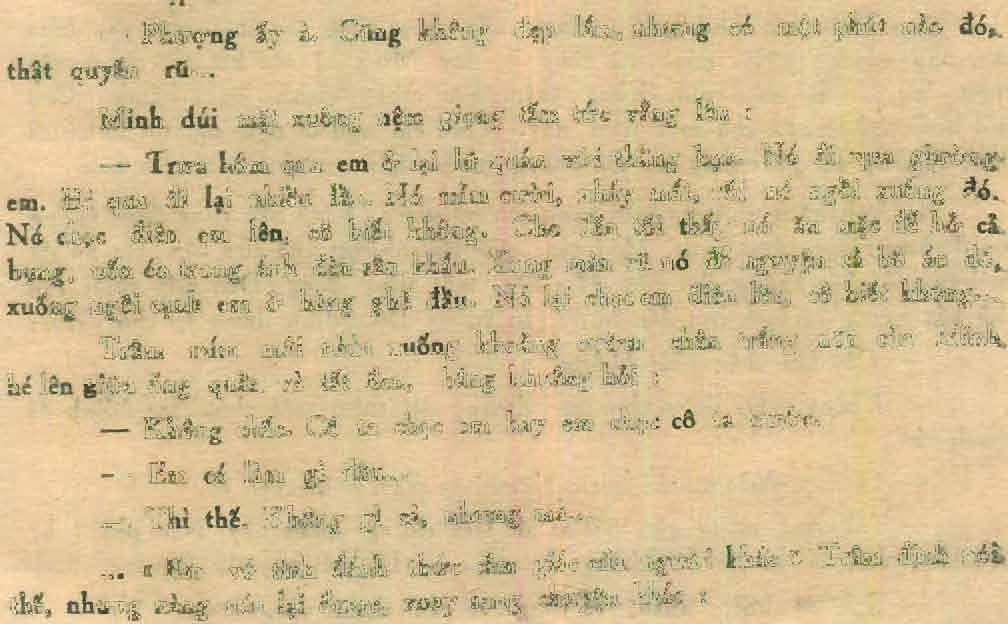 Phượng ấy à. Cũng không đẹp lắm, nhưng có một phút nào đó,
thật quyến rũ...
Minh dúi mặt xuống nệm giọng tấm tức vẳng lên :
— Trưa hôm qua em ở lại lữ quán với thằng bạn. Nó đi qua giường
em. qua lại nhiều lần. Nó mỉm cười, nháy mắt, rồi nó ngồi xuống đó.
Nó chọc điên em lên, cô biết không. Cho đến tối thấy nó ăn mặc để hở cả
bụng, uốn éo trong ánh đèn sân khấu. Xong màn vũ nó để nguyên cả bộ áo đó,
xuống ngồi cạnh em ở hàng ghế đầu. Nó lại chọc em điên lên, cô biết không...
Trầm mím môi nhìn xuống khoảng chân trắng của Minh,
hé lên giữa ống quần và tất đen, bâng khuâng hỏi :
— Không chắc. Cô ta chọc em hay em chọc cô ta trước.
— Em có làm gì đâu...
— Thì thế. Không gì cả, nhưng mà...
... « vô tình đánh thức cảm giác của người khác » Trầm định nói
thế, nhưng nàng lại được, xoay sang chuyện khác :